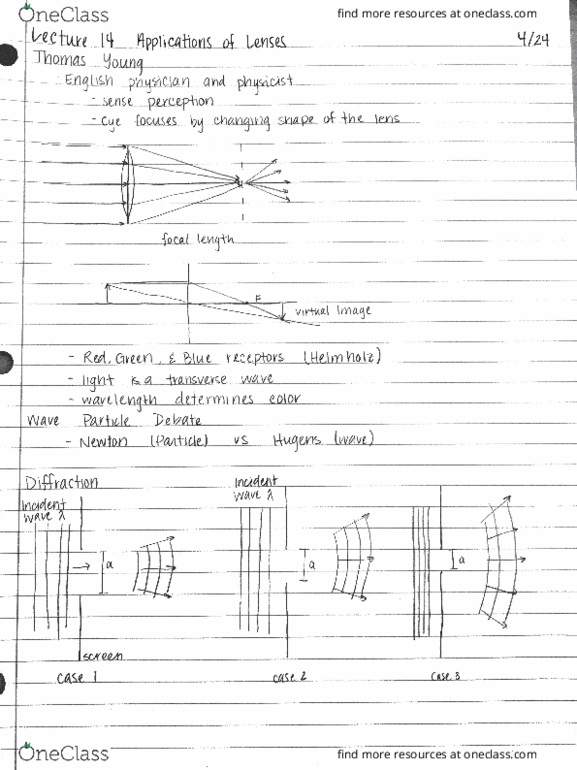 OneClass
find more resources at oneclass.com
Lecture 14 Applications of Lenses
4/24
Thomas Young
English physician and physicist
- sense perception
- Eye focuses by changing shape of the lens
focal length
F
virtual Image
- Red, Green, & Blue receptors (Helmholz)
- light is a transverse wave
- wavelength determines color
Wave Particle Debate
- Newton (Particle) vs Hugens (wave)
Diffraction
Incident
wave λ
a
screen
case 1
Incident
wave λ
a
case 2
a
case 3
OneClass
find more resources at oneclass.com